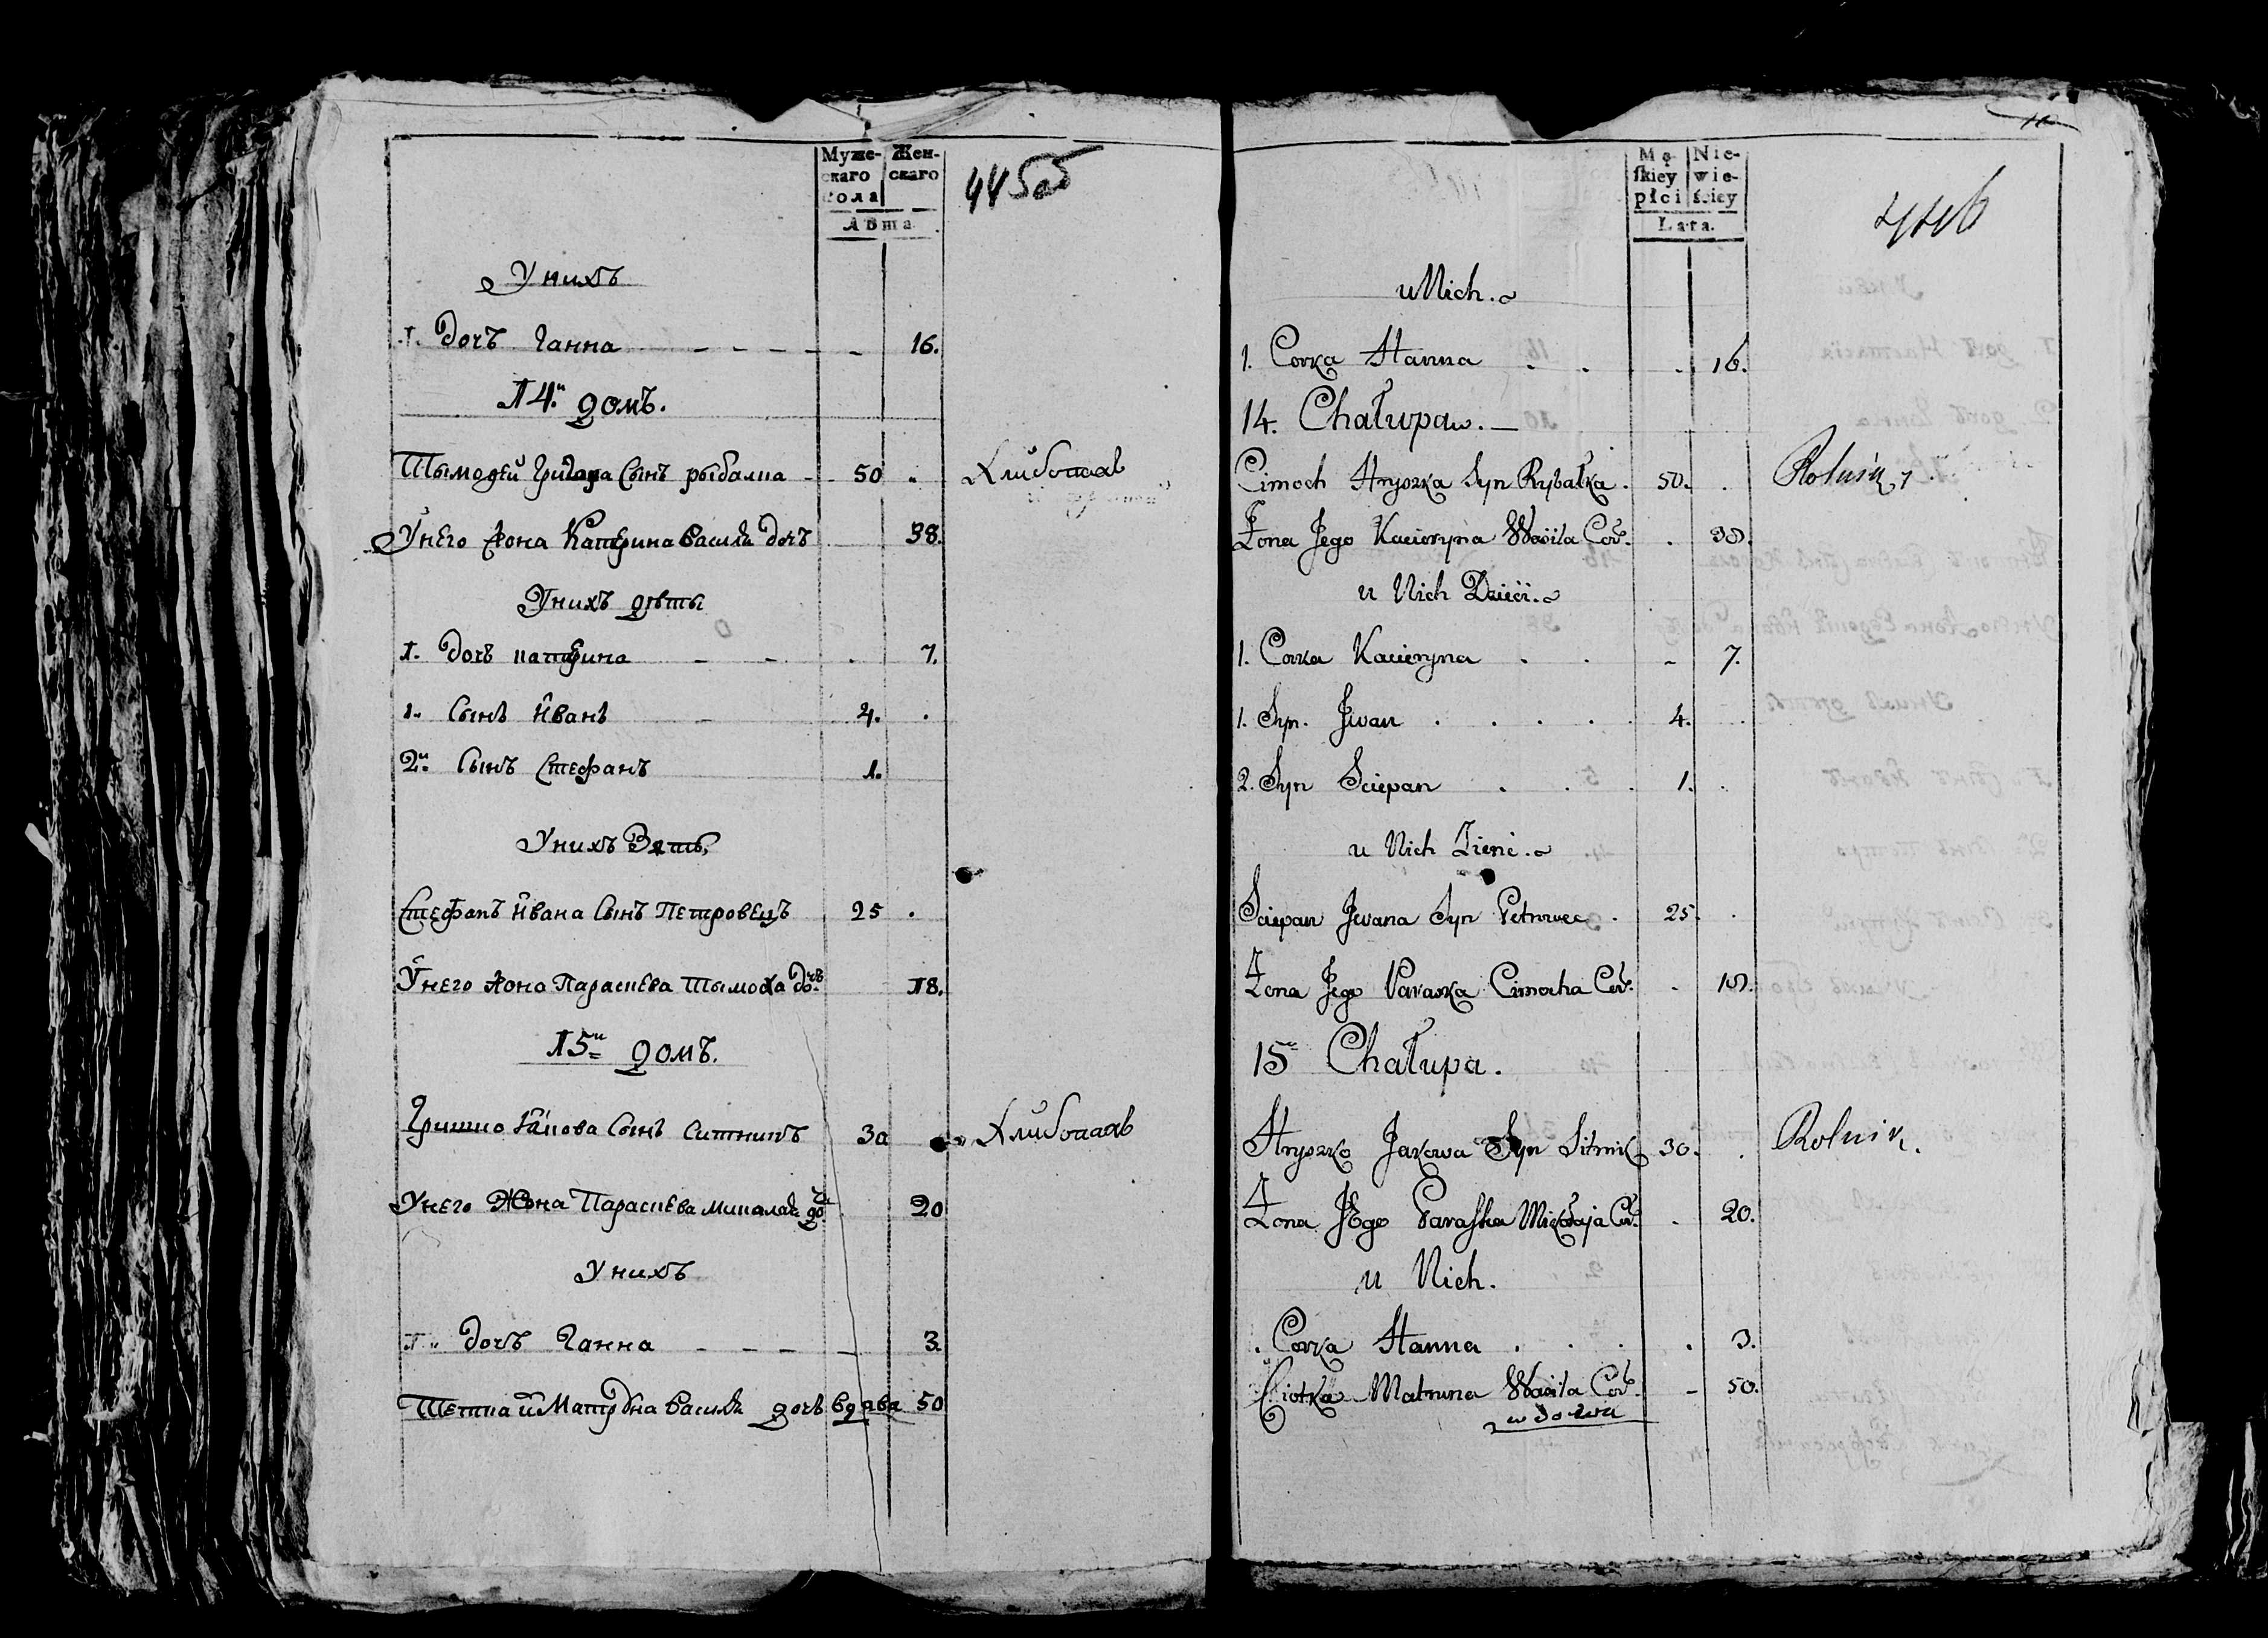 Муже-
скаго
пола
Жен-
скаго
Лѣта
445об
Унихъ
1. Дочъ Ганна 16.
14й домъ.
Тымофей Грицка Сынъ рыбалка 50 Хлиборобъ
Унего жона Катерина Василя дочъ 38.
Унихъ дѣты
1. Дочъ катерина 7.
1. Сынъ Иванъ 4.
2й Сынъ Стефанъ 1.
Унихъ Зять,
Стефанъ Ивана Сынъ Петровецъ 25
Унего жона Параскева Тымоха дочъ 18.
15й домъ.
Гришко Якова Сынъ Ситникъ 30 Хлиборобъ
Унего Жона Параскева Миколая до: 20
Унихъ
1. Дочъ Ганна 3.
Тетка и Матрона Василя дочъ вдова 50
Mę-
skiey
płci
Nie-
wie-
ściey
Lata.
446
u Nich.
1. Corka Hanna 16.
14. Chałupa. —
Cimoch Hryszka Syn Rybałka. 50. Rolnik
Żona Jego Kacieryna Wasila Cor. 38.
u Nich Dzieci.
1. Corka Kacieryna 7.
1. Syn. Jwan 4.
2. Syn Sciepan 1.
u Nich Zienć.
Sciepan Jwana Syn Petrowec 25.
Żona Jego Paraska Cimocha Cor. 18.
15 Chałupa.
Hryszko Jakowa Syn Sitnik 30. Rolnik.
Żona JEgo Paraska Mikołaja Cor. 20.
u Nich.
Corka Hanna 3.
Ciotka Matruna Wasila Cor. 50.
wdowa